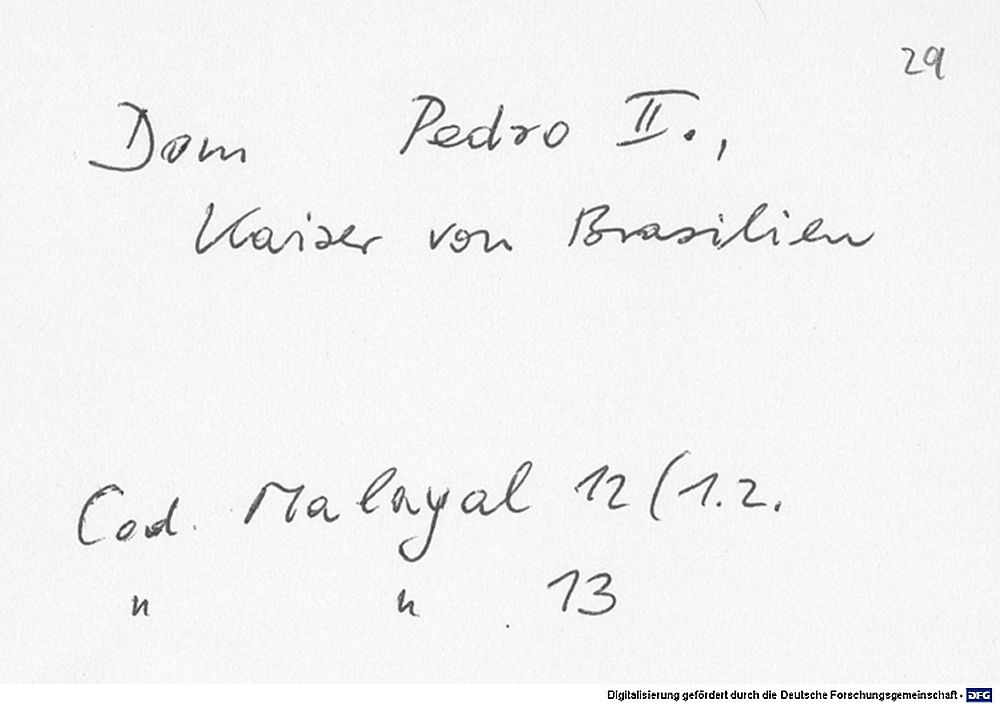 29
Dom Pedro II.,
Kaiser von Brasilien
Cod. Malayal 12(1.2.
" " 13
Digitalisierung gefördert durch die Deutsche Forschungsgemeinschaft - DFG